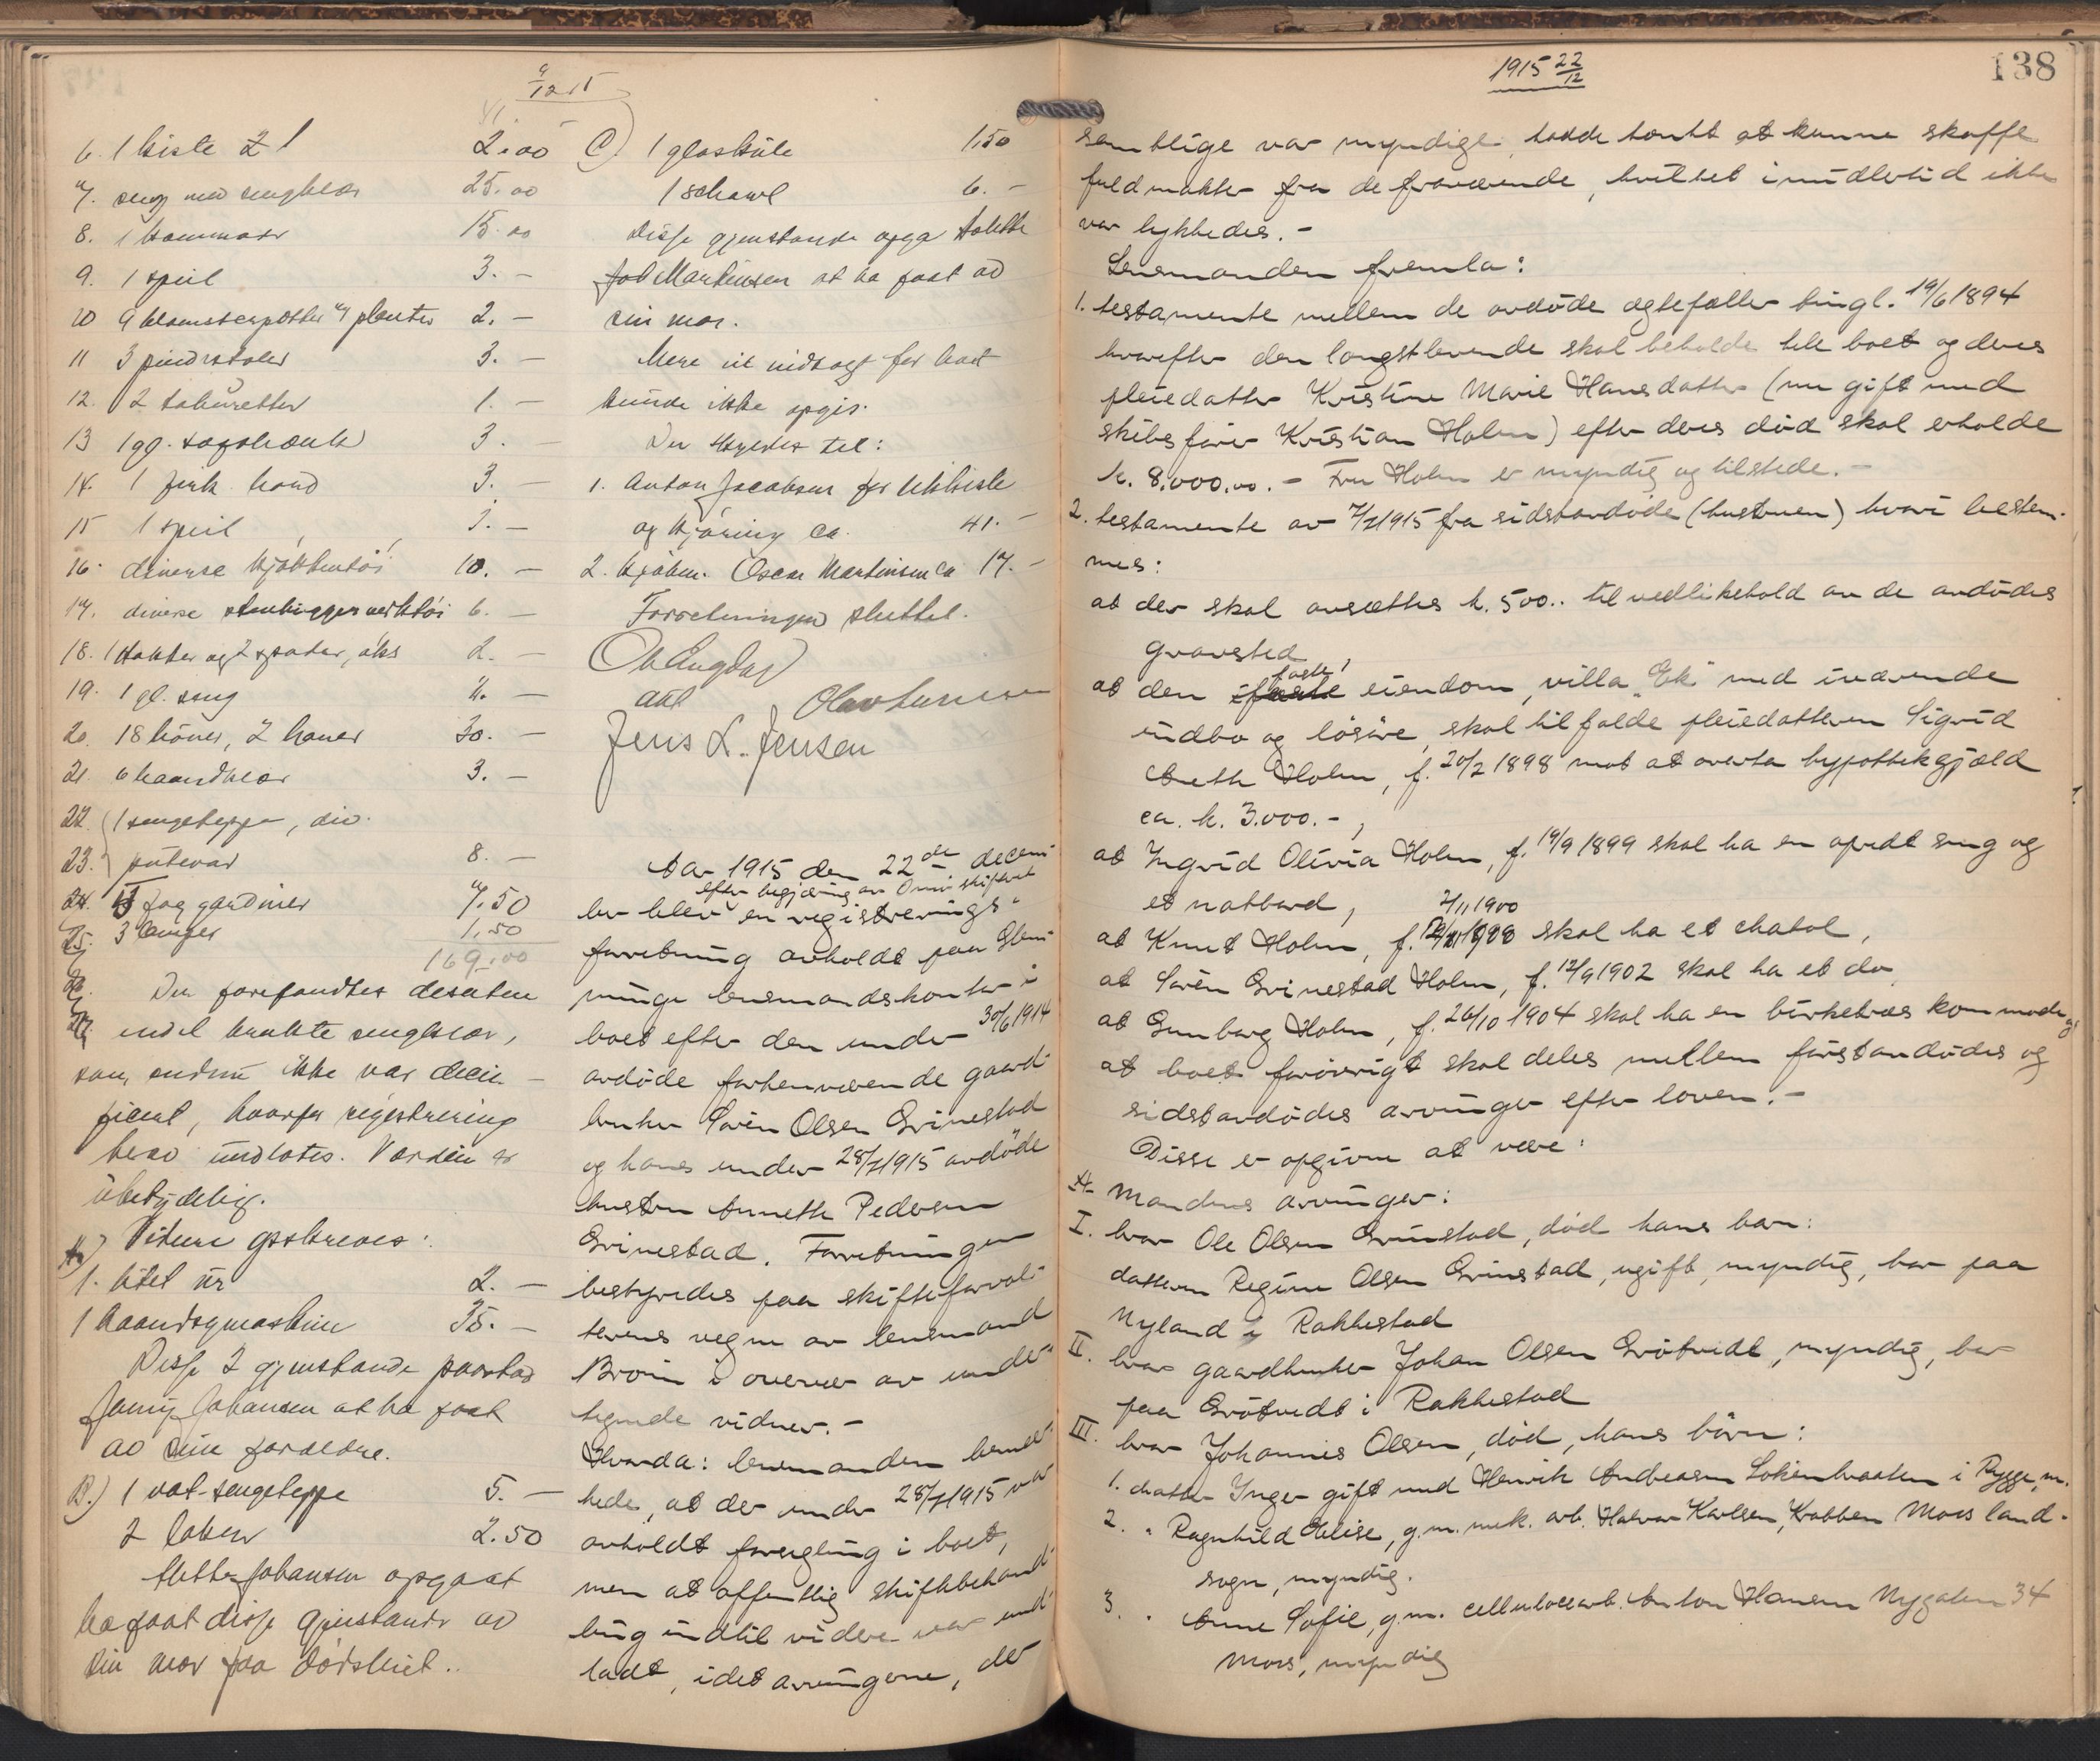 9/12 15
6. 1 kiste 2 2.00
7. seng med sengklær 25.00
8. 1 kommode 15.00
9. 1 speil 3. -
10 9 blomsterpotter m/ planter 2. -
11 3 pindestoler 3. -
12. 2 taburetter 1. -
13 1 gl. 3. -
14. 1 firk. bord 3. -
15 1 speil 3. -
16. diverse kjøkkentøi 10. -
17. diverse stenhuggerverktøi 6. -
18. 1 hakke og 2 spader, øks 2. -
19. 1 gl. seng 4. -
20. 18 høner, 2 haner 30. -
21. 6 haandklær 3. -
22. 1 sengeteppe, div.
23. putevar 8. -
24. fag gardiner 7.50
25. 3 lamper 1.50
169.00
Der forefandtes desuten
endel brukte sengklær,
som endnu ikke var desin-
ficert, hvorfor registrering
herav undlotes. Værdien er
ubetydelig.
A) Videre opskreves:
1. litet ur 2. -
1 haandsymaskine 35. -
Disse 2 gjenstande paastod
Jenny Johansen at ha faat
av sine forældre.
B.) 1 vat-sengeteppe 5. -
2 laken 2.50
Johansen opga at
ha faat disse gjenstande av
sin mor paa dødsleiet..
C) 1 glaskule 1.50
1 schawl 6. -
Disse gjenstande opga
Martinsen at ha faat av
sin mor.
Mere at indtægt for boet
kunde ikke opgis.
Der skyldes til:
1. Anton Jacobsen for likkiste
og kjøring ca. 41. -
2. kjøbm. Oscar Martinsen ca 17. -
Forretningen sluttet.
Jens L. Jensen
Aar 1915 den 22de decem-
efter begjæring av Onsø skifteret
ber blev en registrerings-
forretning avholdt paa Glem-
minge lensmandskontor i
boet efter den under 30/6 1914
avdøde forhenværende gaard-
bruker Søren Olsen Grinestad
og hans under 28/7 1915 avdøde
hustru Annette Pedersen
Grinestad. Forretningen
bestyredes paa skifteforval-
terens vegne av lensmand
Broin i overvær av under-
tegnede vidner. -
Hvorda: lensmanden bemer-
kede, at der under 28/7 1915 var
avholdt forsegling i boet,
men at offentlig skiftebehand-
ling indtil videre var und-
ladt, idet arvingerne, der
1915 22/12
138
samtlige var myndige, hadde tænkt at kunne skaffe
fuldmakter fra de fraværende, hvilket imidlertid ikke
var lykkedes. -
Lensmanden fremla:
1. testamente mellem de avdøde egtefæller tingl. 19/6 1894
hvorefter den længstlevende skal beholde hele boet og deres
pleiedatter Kristine Marie Hansdatter (nu gift med
skibsfører Kristian Holm) efter deres død skal erholde
k. 8.000.00. - Fru Holm er myndig og tilstede. -
2. testamente av 7/7 1915 fra sidstavdøde (hustruen) hvori bestem-
mes:
at der skal avsættes k. 500.. til vedlikehold av de avdødes
gravsted,
at den faste eiendom, villa "Ek" med iværende
indbo og løsøre, skal tilfalde pleiedatteren Sigrid
Anette Holm, f. 20/2 1898 mot at overta hypotekgjæld
ca. k. 3.000. -,
at Ingrid Olivia Holm, f. 19/9 1899 skal ha en opredt seng og
et natbord,
at Knut Holm, f. 2/11 1900 skal ha et chatol,
at Søren Grinestad Holm, f. 12/9 1902 skal ha et do,
at Gunborg Holm, f. 26/10 1904 skal ha en birketræs kommode og
at boet forøvrigt skal deles mellem førstavdødes og
sidstavdødes arvinger efter loven. -
Disse er opgivne at være:
A. Mandens arvinger:
I. bror Ole Olsen Grinestad, død hans barn:
datteren Regine Olsen Grinestad, ugift, myndig, bor paa
Nyland i Rakkestad
II. bror gaardbruker Johan Olsen Grøtvedt, myndig, bor
paa Grøtvedt i Rakkestad
III. bror Johannes Olsen, død, hans børn:
1. datter Inger gift med Henrik Andreasen Lokenbraaten i Rygge, m.
2. " Ragnhild Elise, g.m. mek. arb. Halvor Karlsen, Krabben Moss land-
sogn, myndig.
3. " Anne Sofie, g.m. cellulosearb. Anton Hansen Nygaten 34
Moss, myndig